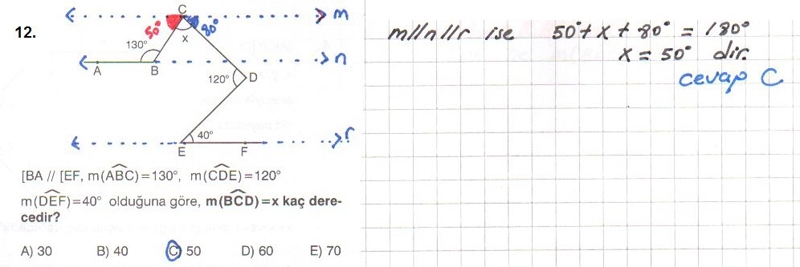 12.
C
m
50°
80°
x
130°
n
A
B
120°
D
r
40°
E
F
[BA // [EF, m(ABC)=130°, m(CDE)=120°
m(DEF)=40° olduğuna göre, m(BCD)=x kaç dere-
cedir?
A) 30 B) 40 C) 50 D) 60 E) 70
m//n//r ise 50°+x+80°=180°
x=50° dir.
cevap C